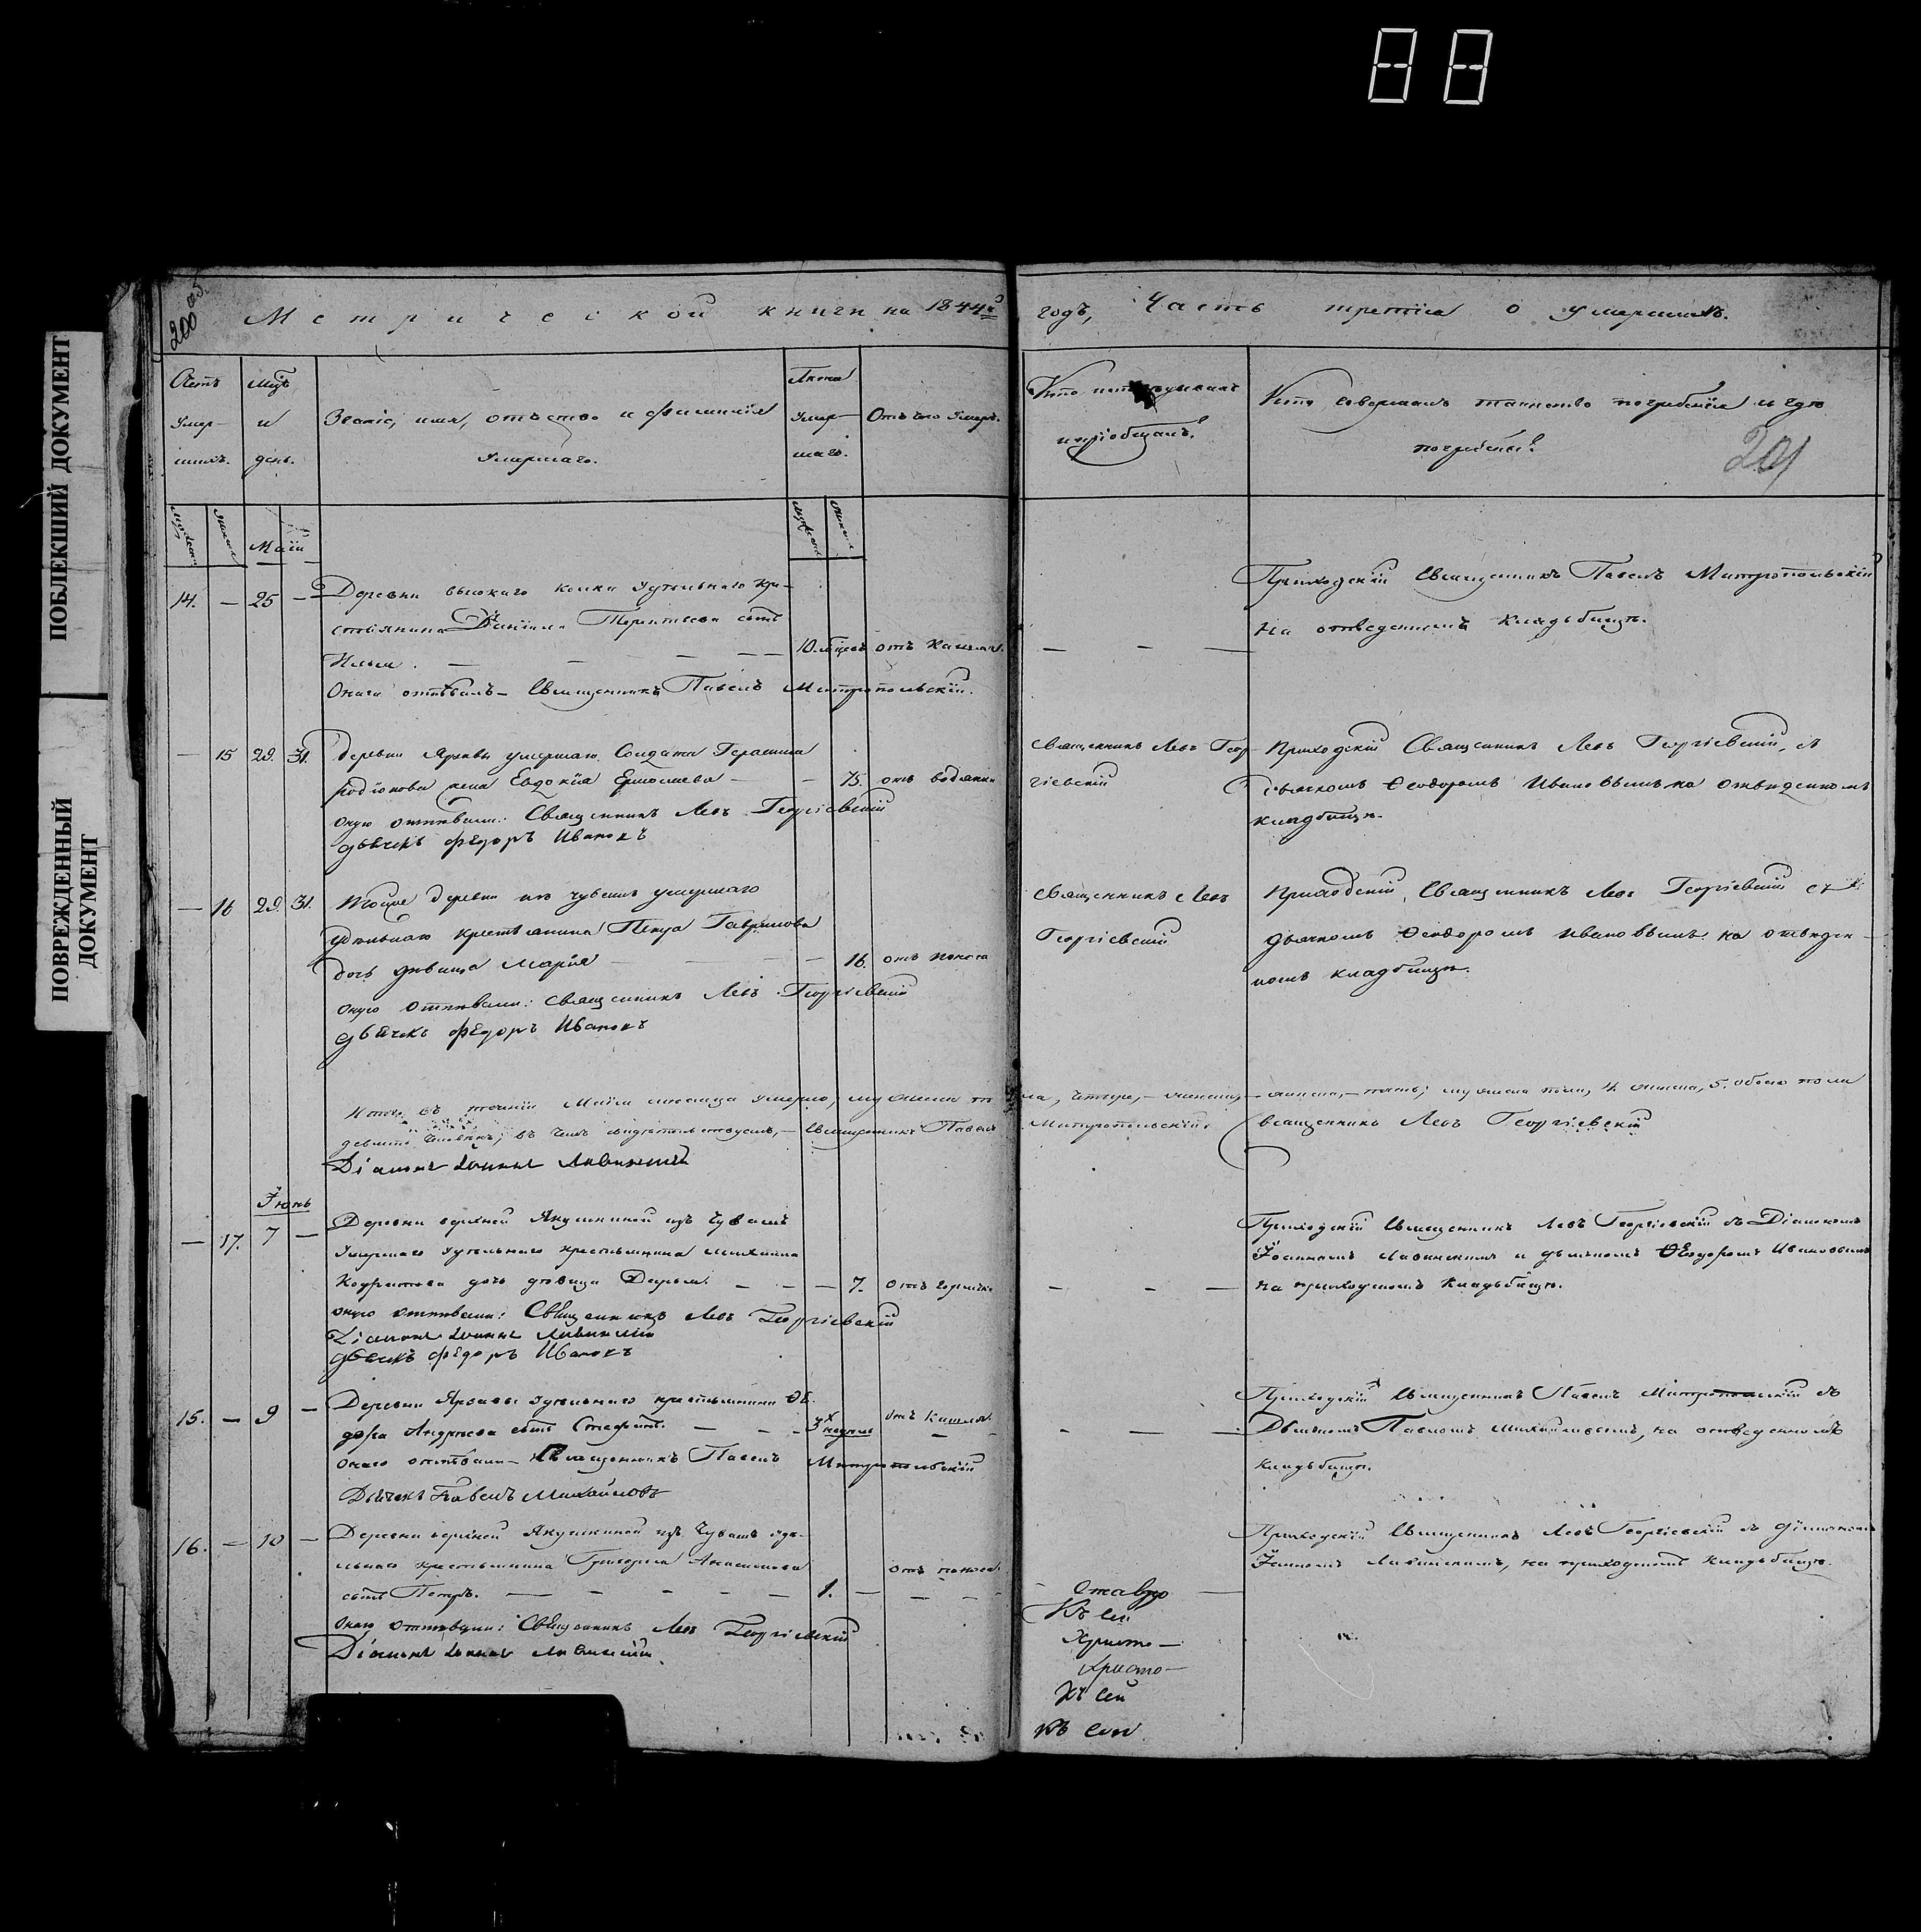 88
ПОБЛЕКШИЙ ДОКУМЕНТ
ПОВРЕЖДЕННЫЙ
ДОКУМЕНТ
200
Метрической книги на 1844й годъ, Часть третiя о умершихъ.
201
Счетъ умер-шихъ.
Мцъ и день.
Званiе, имя, отчество и фамилiя умершаго.
Лѣта умер-шаго.
Отъ чего умеръ.
Кто исповѣдывалъ и прiобщалъ.
Кто совершалъ таинство погребенiя и гдѣ погребены.
Маiй
14. — 25 —
Деревни высокаго колка удѣльнаго кре-
стьянина Данiила Терентьева сынъ
Илья. — — — —
10. мцевъ отъ кашля.
Онаго отпѣвалъ — Священникъ Павелъ Митропольскiй.
Приходскiй Священникъ Павелъ Митропольскiй
на отведенномъ кладьбищѣ.
— 15 29. 31.
деревни умершаго Солдата Герасима
Родiонова жена Евдокiя Ермолаева — — 75. отъ водянки
оную отпѣвали: Священникъ Левъ Георгiевскiй
дьячекъ Федоръ Ивановъ
Священникъ Левъ Геор-
гiевскiй
Приходскiй Священникъ Левъ Георгiевскiй, съ
дьячкомъ Ѳеодоромъ Ивановымъ на отведенномъ
кладбищѣ.
— 16 29. 31.
Тойже деревни изъ чувашъ умершаго
удѣльнаго крестьянина Петра Гаврилова
дочь дѣвица Марiя — — 16. отъ поноса
оную отпѣвали: священникъ Левъ Георгiевскiй
дьячекъ Федоръ Ивановъ
Священникъ Левъ
Георгiевскiй
Приходскiй, Священникъ Левъ Георгiевскiй съ
дьячкомъ Ѳеодоромъ Ивановымъ на отведен-
номъ кладбищѣ.
Итого въ теченiи Маiя месяца умерло, мужеска пола, четыре, — женска, — пять; мужеска пола, 4. женска, 5. обоего пола
девять человѣкъ; въ чемъ свидѣтельствуемъ, — Священникъ Павелъ Митропольскiй.
Священникъ Левъ Георгiевскiй
Дiаконъ Iоаннъ Ливинскiй
Iюнь
— 17. 7 —
Деревни верхней Якушкиной изъ Чувашъ
умершаго удѣльнаго крестьянина Михаила
дочь дѣвица Дарья. — — — 7. отъ горячки
оную отпѣвали: Священникъ Левъ Георгiевскiй
Дiаконъ Iоаннъ Ливинскiй
дьячекъ Федоръ Ивановъ
Приходскiй Священникъ Левъ Георгiевскiй съ Дiакономъ
Iоанномъ Ливинскимъ и дьячкомъ Ѳеодоромъ Ивановымъ
на приходскомъ кладьбищѣ.
15. — 9 —
Деревни удѣльнаго крестьянина Ѳе-
дора Андреева сынъ — — 3х недѣль отъ кашля.
Онаго отпѣвали — Священникъ Павелъ Митропольскiй
Дьячекъ Павелъ Михайловъ
Приходскiй Священникъ Павелъ Митропольскiй съ
Дьячкомъ Павломъ Михайловымъ, на отведенномъ
кладьбищѣ.
16. — 10 —
Деревни верхней Якушкиной изъ Чувашъ удѣ-
льнаго крестьянина Григорья
сынъ Петръ. — — — — 1. — отъ поноса.
Онаго отпѣвали: Священникъ Левъ Георгiевскiй
Дiаконъ Iоаннъ Ливинскiй
Приходскiй Священникъ Левъ Георгiевскiй съ дiакономъ
Iоанномъ Ливинскимъ, на приходскомъ кладьбищѣ.
Къ сей
Христо-
Христо-
Къ сей
Къ сей